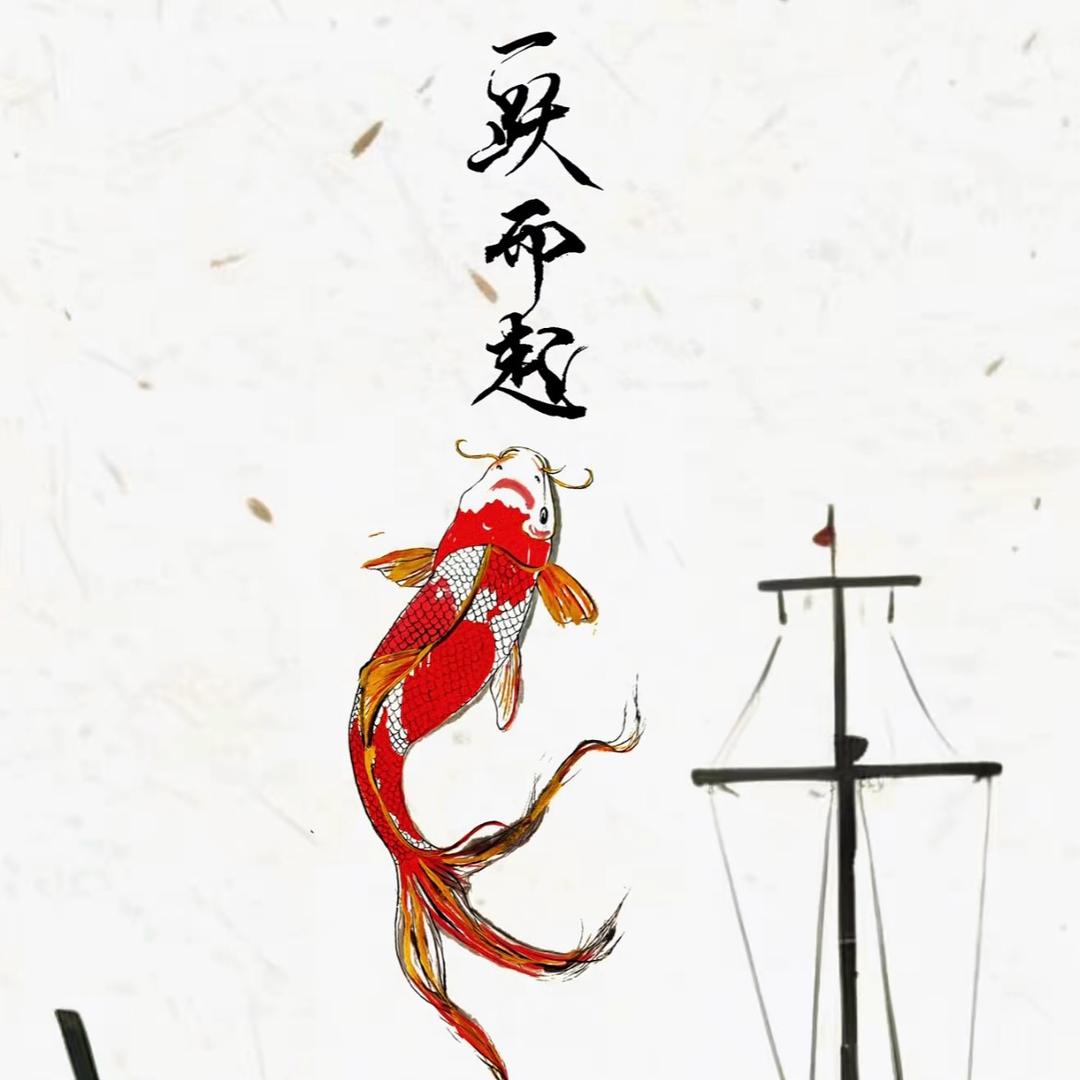 一跃而起